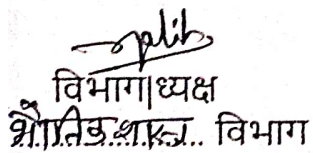 विभागाध्यक्ष
भौतिक शास्त्र विभाग